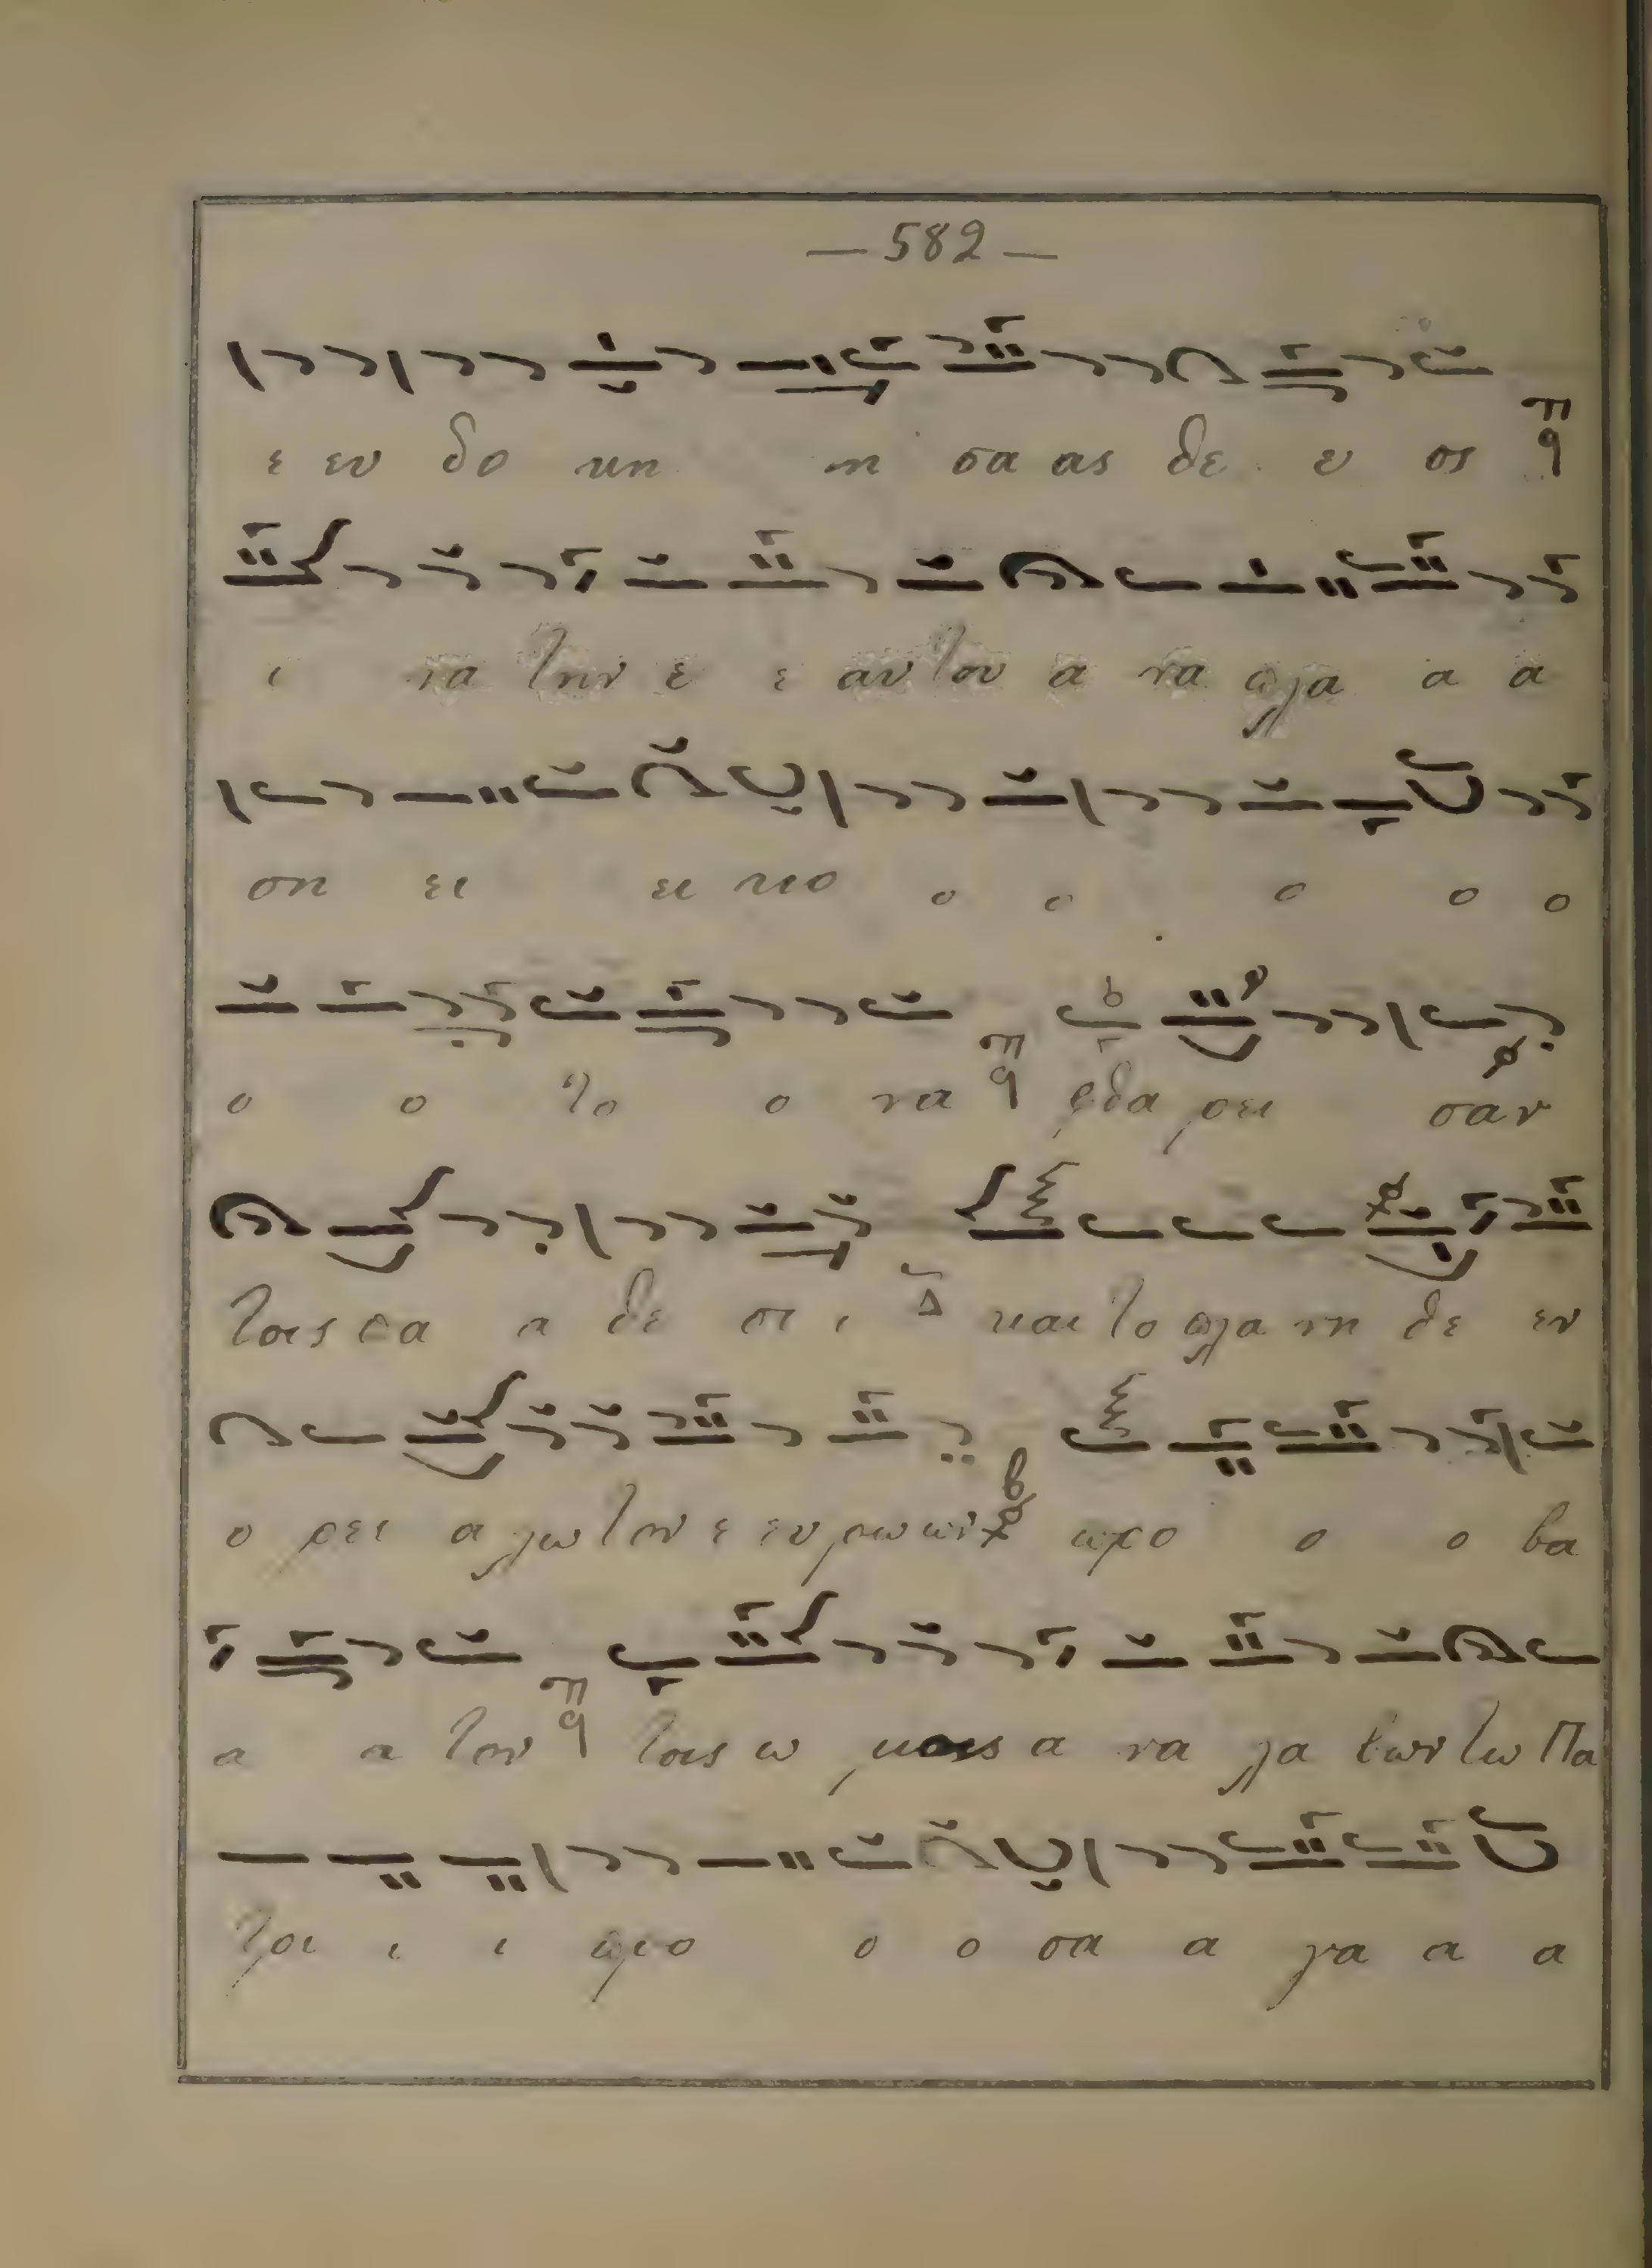 — 582 —
ε ευ δο κη η σα ας θε ε ος
ι να την ε ε αυ του α να πλα α α
ση ει ει κο ο ο ο ο ο
ο ο το ο να φθα ρει σαν
τοις πα α θε σι ι Δ και το πλα νη θε εν
ο ρει α λω τον ε ευ ρω ων προ ο ο βα
α α τον τοις ω μοις α να λα βων τω Πα
τρι ι ι προ ο ο σα α γα α α